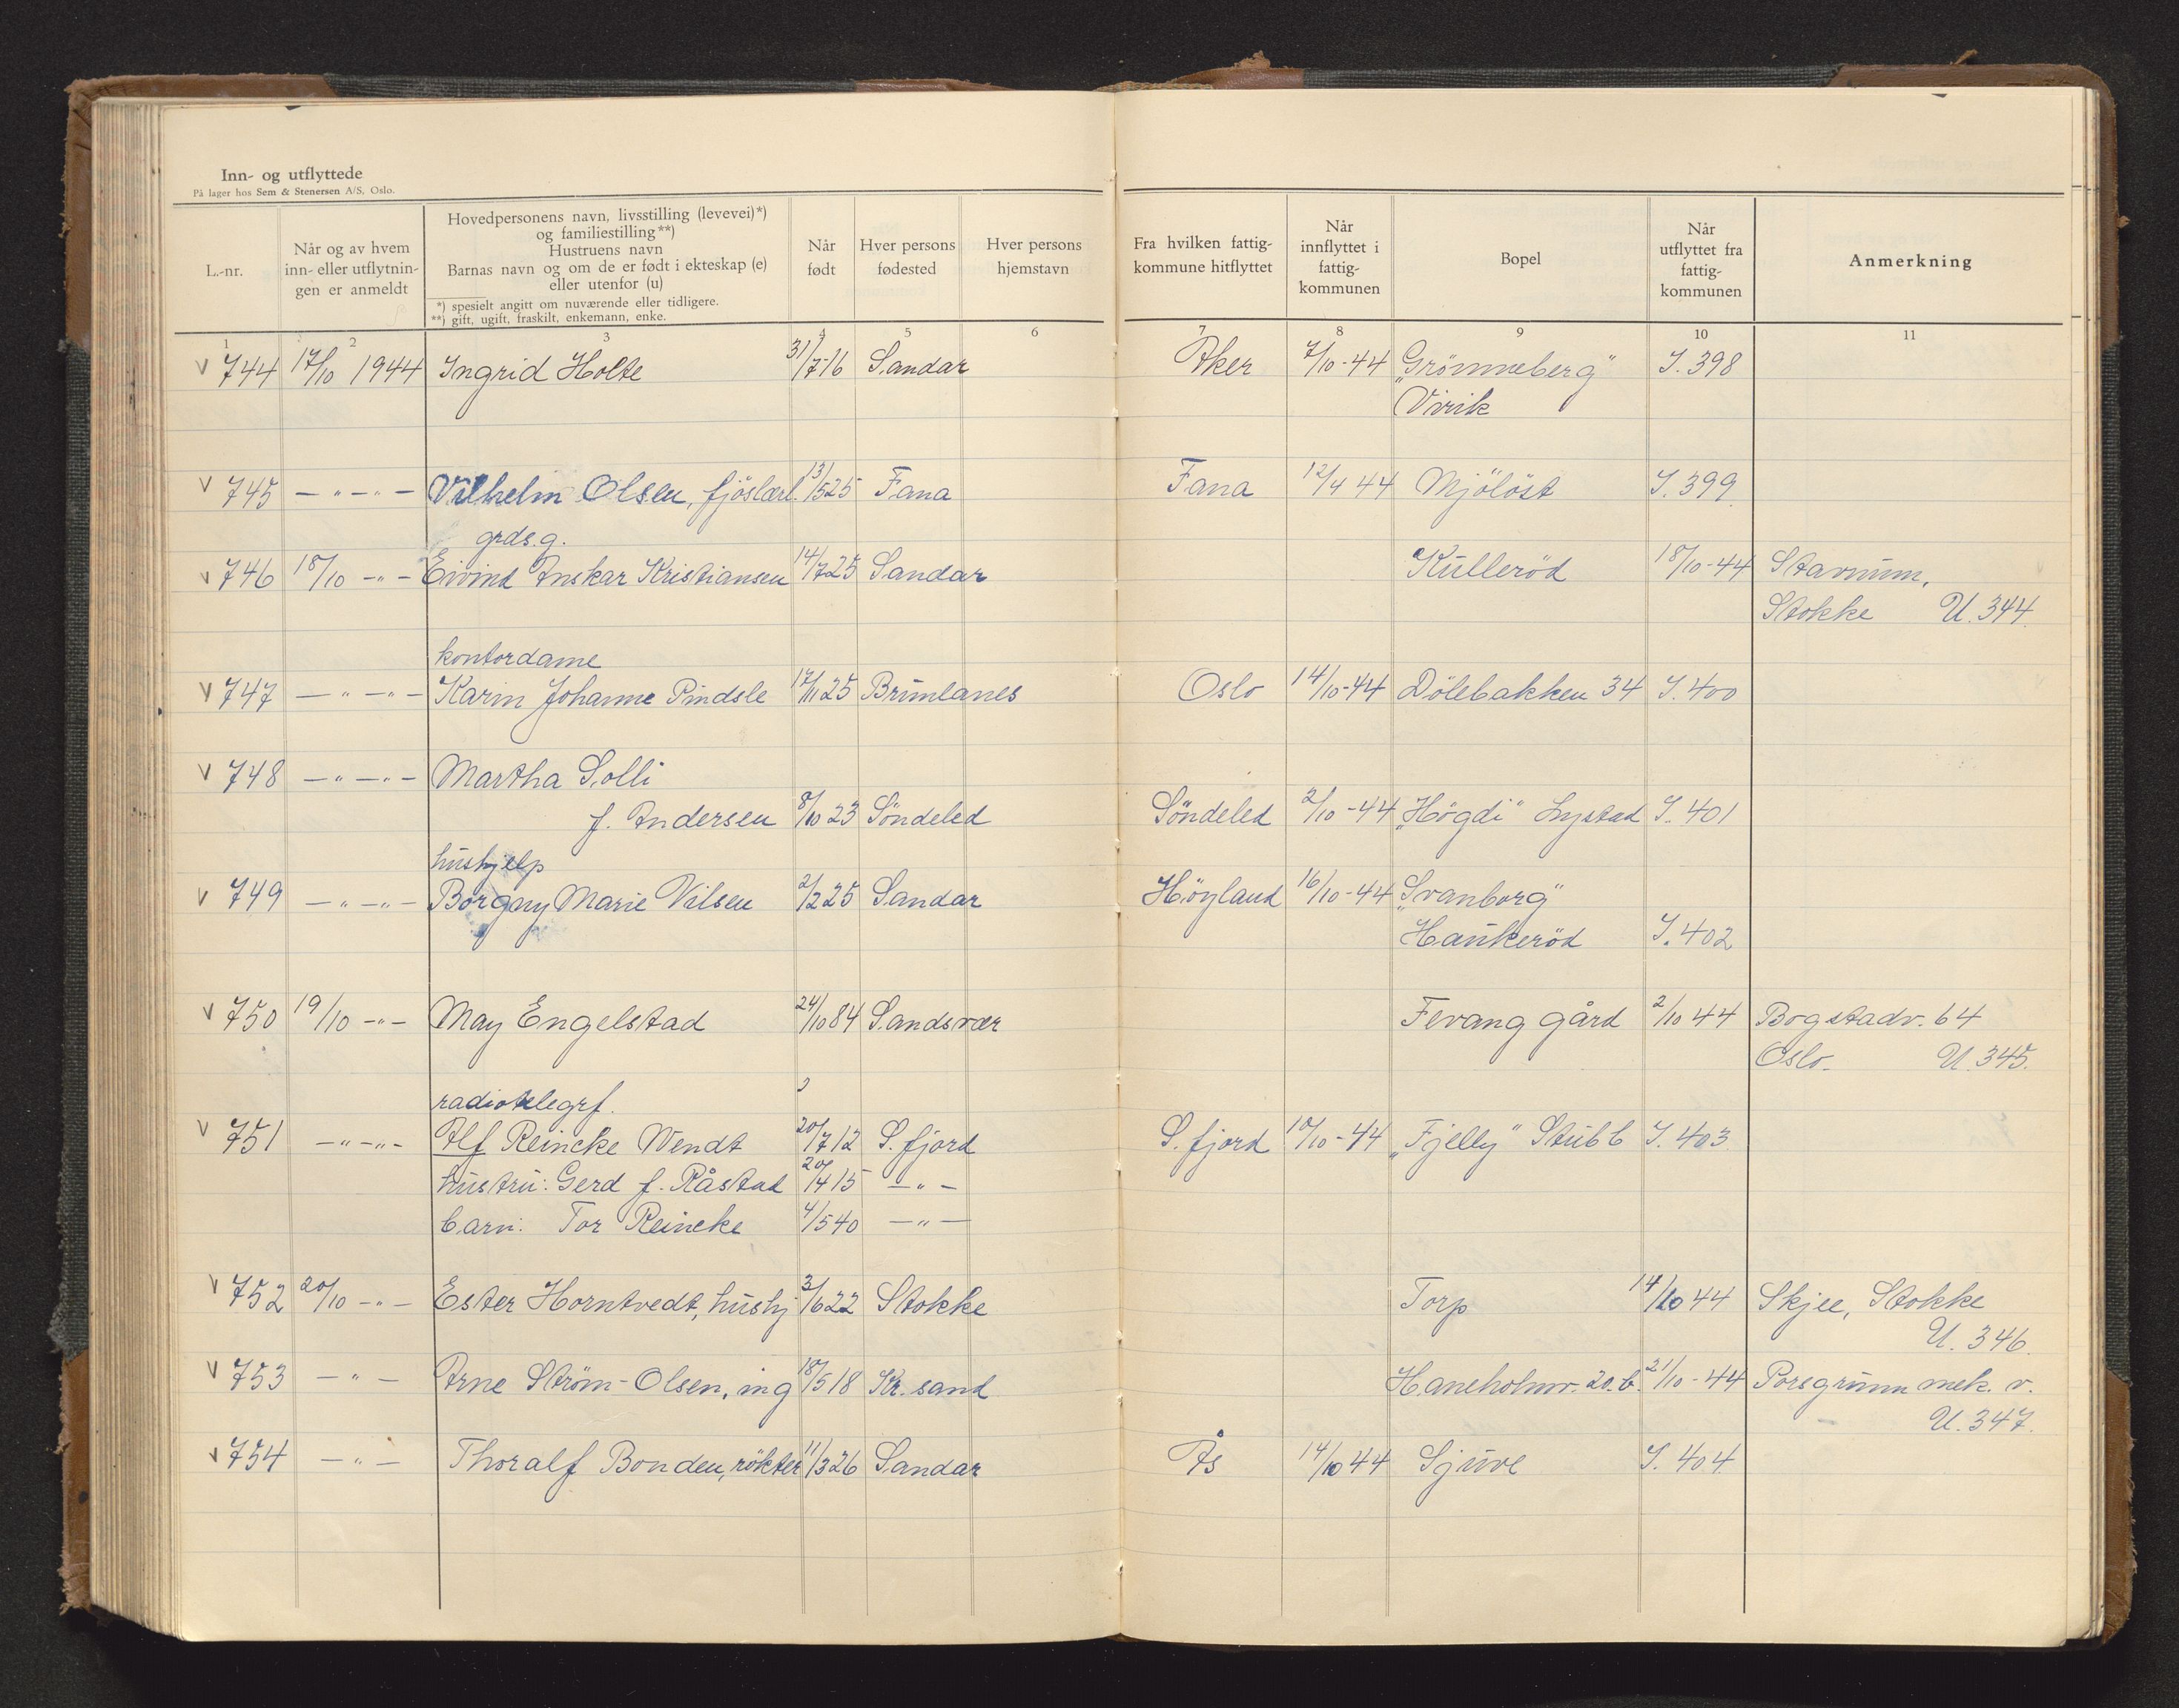 Inn- og utflyttede
På lager hos Sem & Stenersen A/S, Oslo.
L.-nr.
Når og av hvem
inn- eller utflytnin-
gen er anmeldt
Hovedpersonens navn, livsstilling (levevei)*)
og familiestilling**)
Hustruens navn
Barnas navn og om de er født i ekteskap (e)
eller utenfor (u)
*) spesielt angitt om nuværende eller tidligere.
**) gift, ugift, fraskilt, enkemann, enke.
Når
født
Hver persons
fødested
Hver persons
hjemstavn
Fra hvilken fattig-
kommune hitflyttet
Når
innflyttet i
fattig-
kommunen
Bopel
Når
utflyttet fra
fattig-
kommunen
Anmerkning
1 2 3 4 5 6 7 8 9 10 11
V 744 17/10 1944 Ingrid Holte 31/7-16 Sandar Aker 7/10-44 „Grönneberg" I. 398
Virik
V 745 — " — " — Vilhelm Olsen, fjöslærl. 13/5 25 Fana Fana 12/4 44 Mjölöst I. 399
grds.g.
V 746 18/10 - " - Eivind Anskar Kristiansen 14/7 25 Sandar Kulleröd 18/10-44 Stavnum,
Stokke U. 344.
kontordame
V 747 — " — " — Karin Johanne Pindsle 17/11 25 Brunlanes Oslo 14/10-44 Dölebakken 34 I. 400
V 748 — " — " — Martha Solli
f. Andersen 8/10 23 Söndeled Söndeled 2/10-44 „Högdi" Lystad I. 401
hushjelp
V 749 — " — " — Borgny Marie Nilsen 2/2 25 Sandar Höyland 16/10-44 „Svanborg"
Haukeröd I. 402
V 750 19/10 - " - May Engelstad 24/10 84 Sandsvær Fevang gård 2/10 44 Bogstadv. 64
Oslo. U. 345.
radiotelegrf.
V 751 — " — " — Alf Reincke Wendt 20/7 12 S. fjord S. fjord 10/10-44 „Fjelly" Stubb I. 403
hustru: Gerd f. Råstad 20/4 15 — " —
barn: Tor Reincke 4/5 40 — " —
V 752 20/10 - " - Ester Horntvedt, hushj 3/6 22 Stokke Torp 14/10 44 Skjee, Stokke
U. 346.
V 753 — " — Arne Ström-Olsen, ing 18/5 18 Kr. sand Haneholmv. 20.b. 21/10-44 Porsgrunn mek. v.
U. 347.
V 754 — " — Thoralf Bonden, rökter 11/3 26 Sandar Ås 14/10 44 Gjuve I. 404